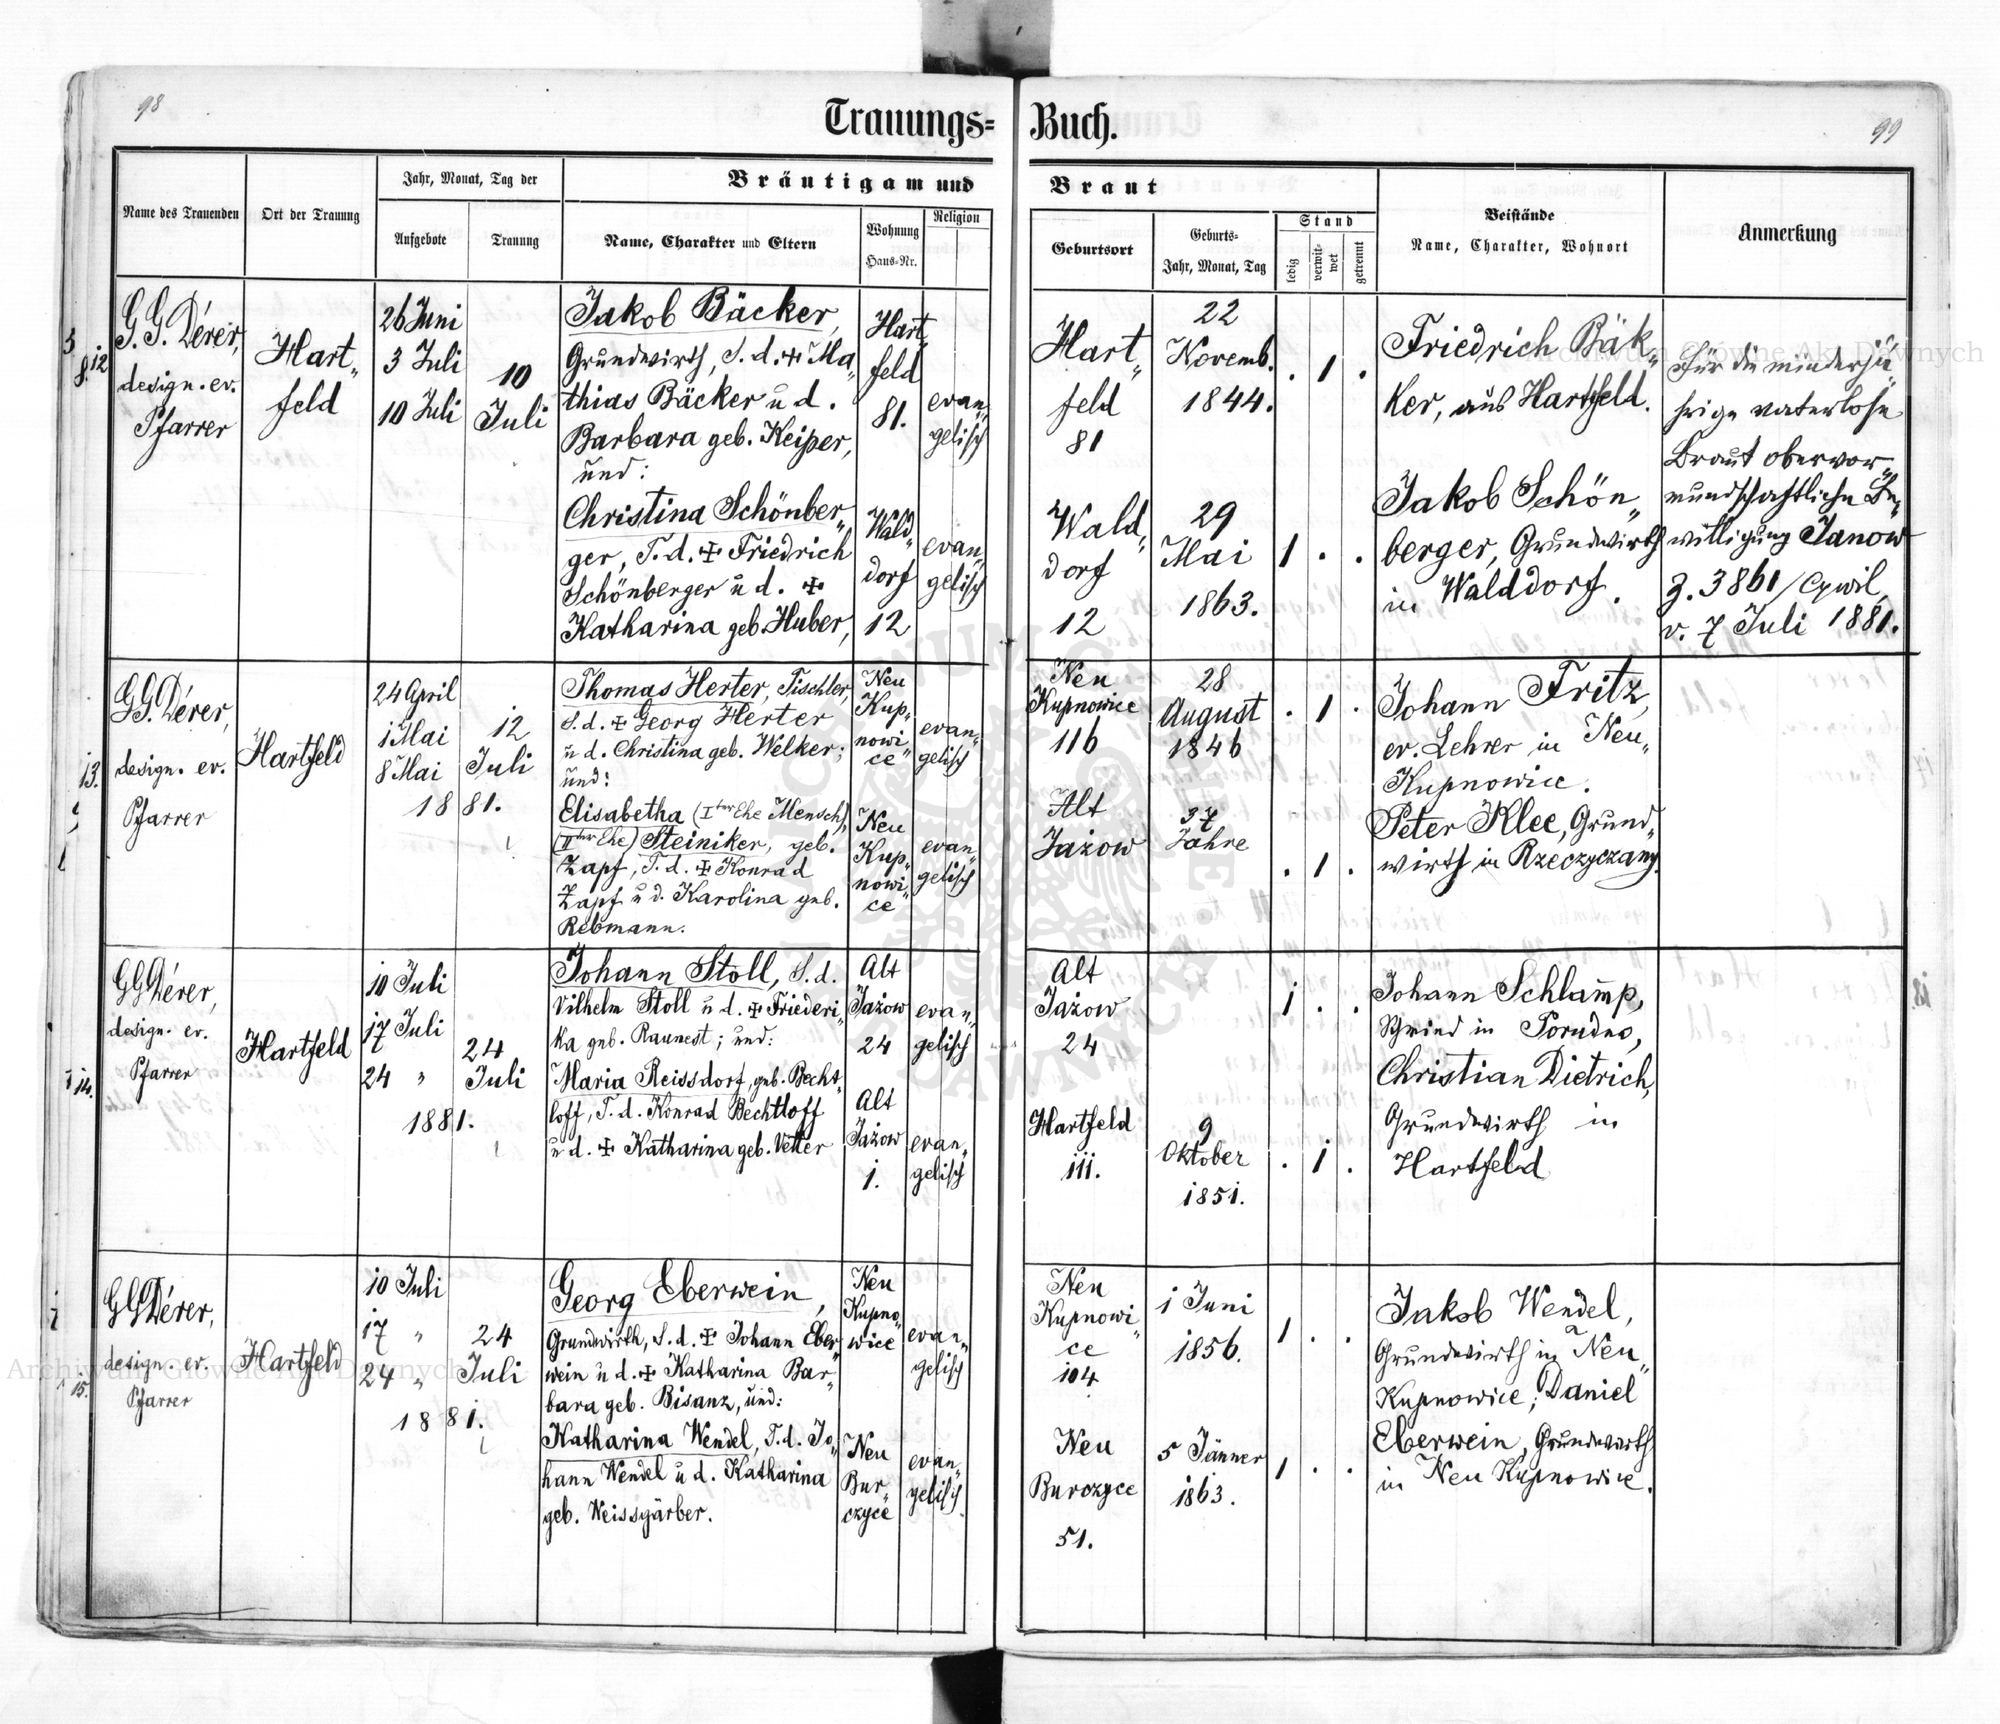 98
Trauungs= Buch.
99
Name des Trauenden
Ort der Trauung
Jahr, Monat, Tag der
Aufgebote
Trauung
Bräutigam und Braut
Name, Charakter und Eltern
Wohnung
Haus-Nr.
Religion
Geburtsort
Geburts-
Jahr, Monat, Tag
Stand
ledig
verwit-
wet
getrennt
Beistände
Name, Charakter, Wohnort
Anmerkung
12
G. G. Dérer,
design. ev.
Pfarrer
Hart„
feld
26 Juni
3 Juli
10 Juli
10
Juli
Jakob Bäcker,
Grundwirth, S. d. ✠ Ma„
thias Bäcker u d.
Barbara geb. Keiper,
und:
Christina Schönber„
ger, T. d. ✠ Friedrich
Schönberger u d. ✠
Katharina geb. Huber,
Hart„
feld
81.
Wald„
dorf
12
evan„
gelisch
evan„
gelisch
Hart„
feld
81
Wald„
dorf
12
22
Novemb.
1844.
29
Mai
1863.
. 1 .
1 . .
Friedrich Bäk„
ker, aus Hartfeld.
Jakob Schön„
berger, Grundwirth
in Walddorf.
Für die minderjä„
hrige vaterlose
Braut obervor„
mundschaftliche Be„
willigung Janow
Z. 3861/Cywil,
v. 7 Juli 1881.
13.
GG. Dérer,
design. ev.
Pfarrer
Hartfeld
24 April
1 Mai
8 Mai
12
Juli
1881.
Thomas Herter, Tischler,
S. d. ✠ Georg Herter
u d. Christina geb. Welker;
und:
Elisabetha (Iter Ehe Mensch),
(IIter Ehe) Steiniker, geb.
Zapf, T. d. ✠ Konrad
Zapf u d. Karolina geb.
Rebmann.
Neu
Kup„
nowi„
ce
Neu
Kup„
nowi„
ce
evan„
gelisch
evan„
gelisch
Neu
Kupnowice
116
Alt
Jażow
28
August
1846
37
Jahre
. 1 .
. 1 .
Johann Fritz,
ev. Lehrer in Neu„
Kupnowice.
Peter Klee, Grund„
wirth in Rzeczyczany.
14.
GG Dérer,
design. ev.
Pfarrer
Hartfeld
10 Juli
17 Juli
24 „
24
Juli
1881.
Johann Stoll, S. d.
Vilhelm Stoll u d. ✠ Friederi„
ka geb. Raunest; und:
Maria Reissdorf, geb. Becht„
loff, T. d. Konrad Bechtloff
u d. ✠ Katharina geb. Vetter
Alt
Jażow
24
Alt
Jażow
1.
evan„
gelisch
evan„
gelisch
Alt
Jażow
24
Hartfeld
111.
9
Oktober
1851.
1 . .
. 1 .
Johann Schlamp,
Schmied in Porudno,
Christian Dietrich,
Grundwirth in
Hartfeld
15.
GG Dérer,
design. ev.
Pfarrer
Hartfeld
10 Juli
17 „
24 „
24
Juli
1881.
Georg Eberwein,
Grundwirth, S. d. ✠ Johann Eber„
wein u d. ✠ Katharina Bar„
bara geb. Bisanz, und:
Katharina Wendel, T. d. Jo„
hann Wendel u d. Katharina
geb. Weissgärber.
Neu
Kupno„
wice
Neu
Bur„
czyce
evan„
gelisch
evan„
gelisch
Neu
Kupnowi„
ce
104
Neu
Burczyce
51.
1 Juni
1856.
5 Jänner
1863.
1 . .
1 . .
Jakob Wendel,
Grundwirth in Neu„
Kupnowice; Daniel
Eberwein, Grundwirth
in Neu Kupnowice.
Archiwum Główne Akt Dawnych
Archiwum Główne Akt Dawnych
ARCHIWUM GŁÓWNE AKT DAWNYCH